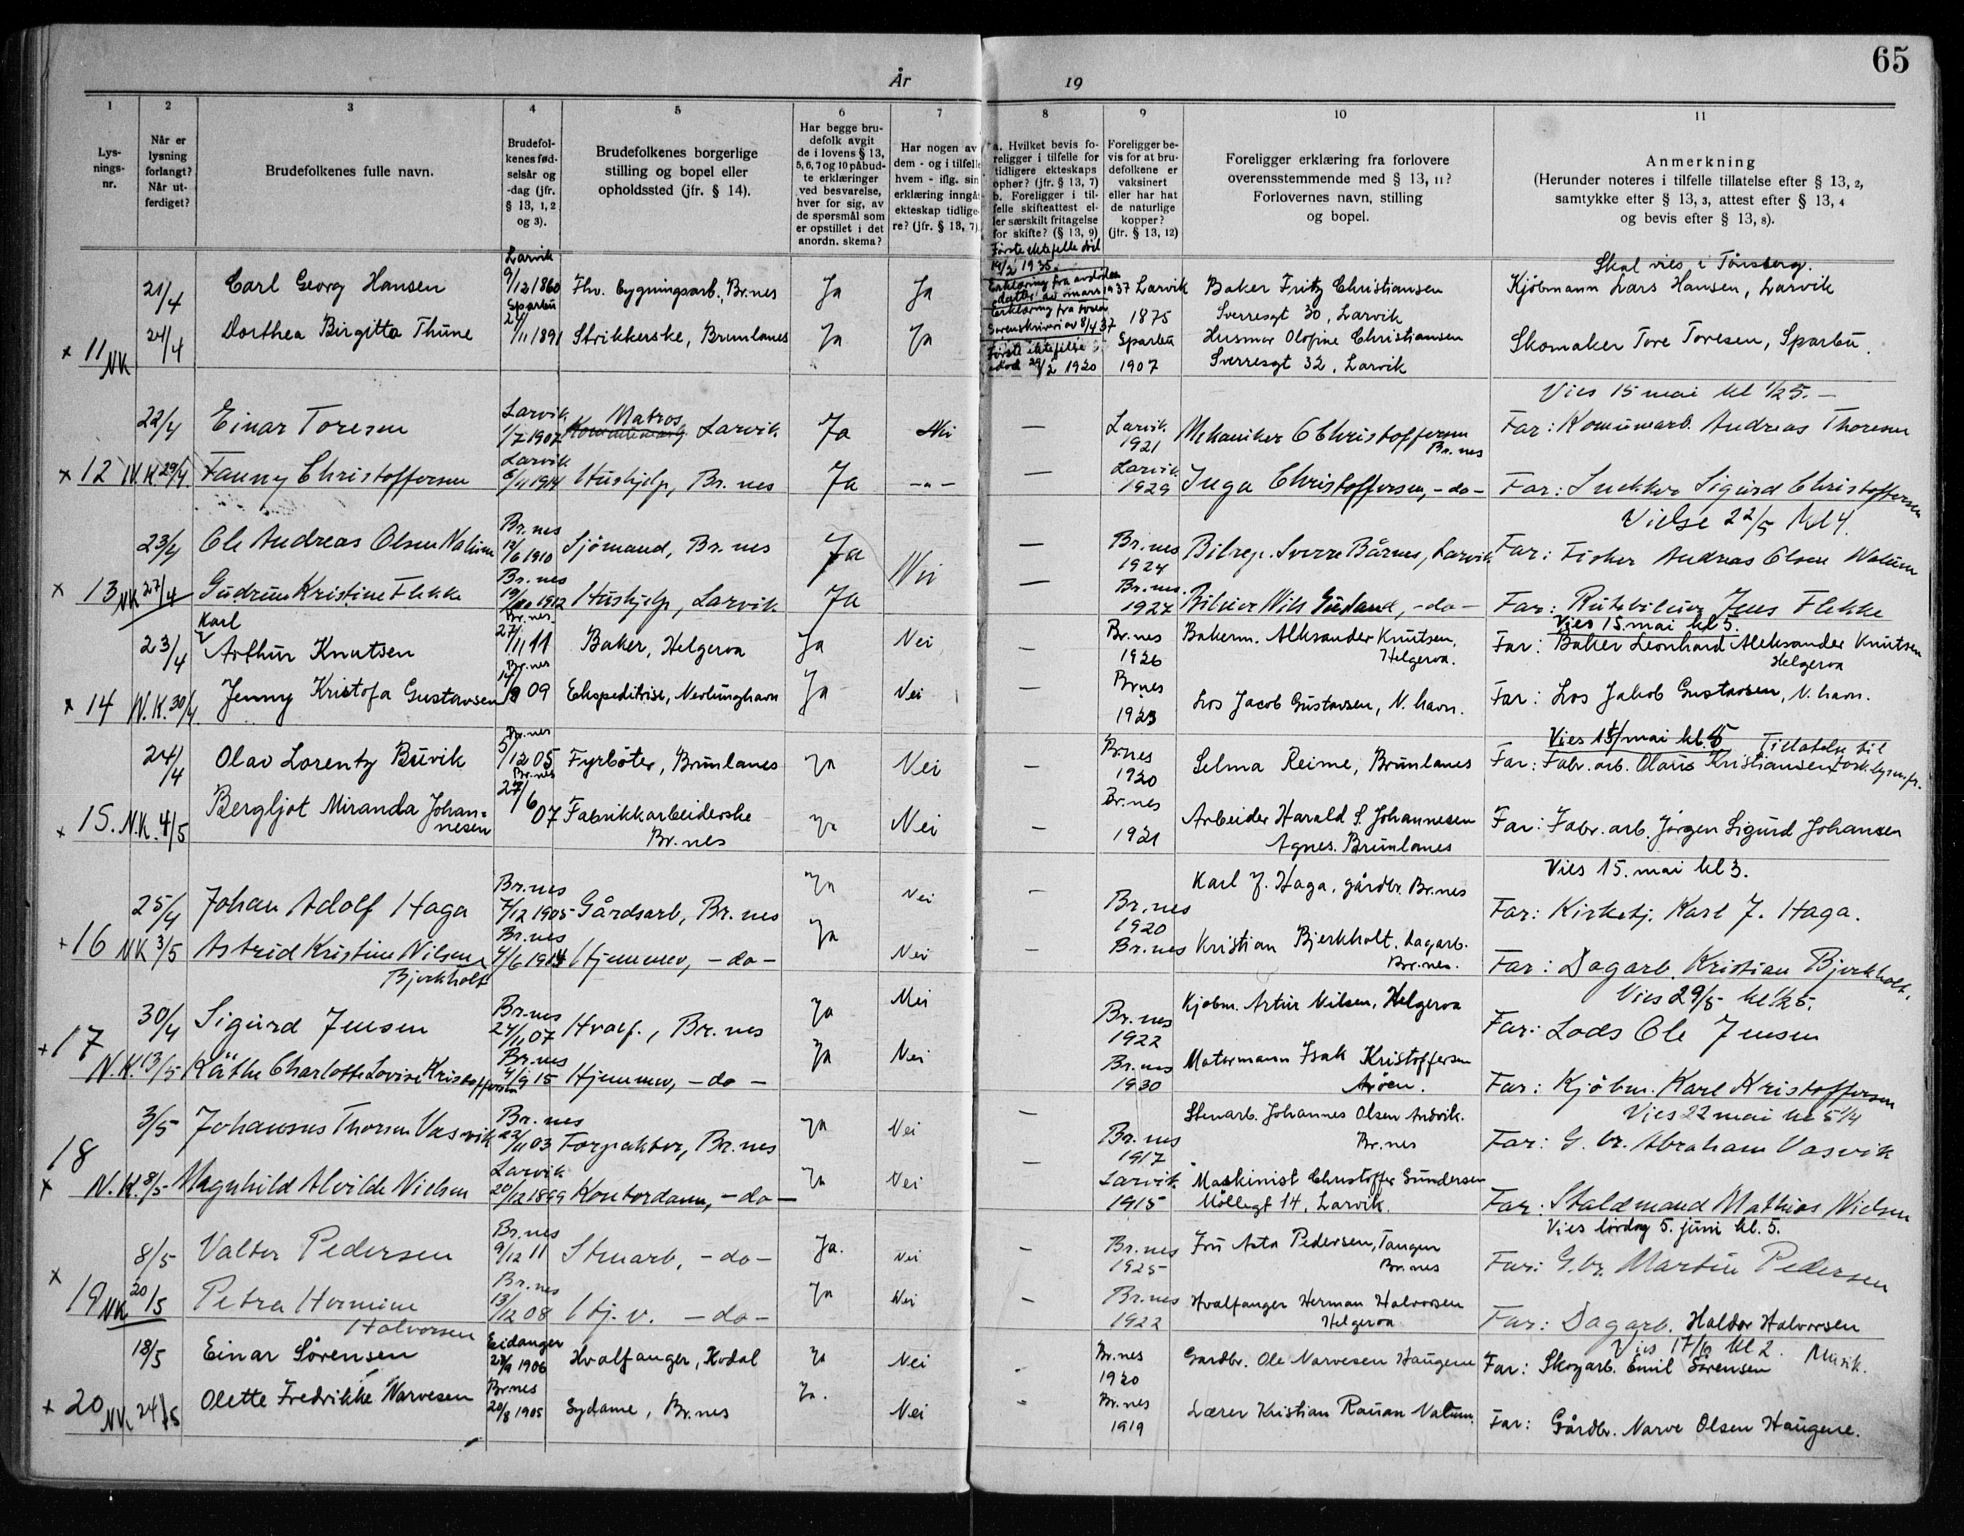 65
År 19
1 2 3 4 5 6 7 8 9 10 11
Lys-
nings-
nr.
Når er
lysning
forlangt?
Når ut-
ferdiget?
Brudefolkenes fulle navn.
Brudefol-
kenes fød-
selsår og
-dag (jfr.
§ 13, 1, 2
og 3).
Brudefolkenes borgerlige
stilling og bopel eller
opholdssted (jfr. § 14).
Har begge bru-
defolk avgit
de i lovens § 13,
5, 6, 7 og 10 påbud-
te erklæringer
ved besvarelse,
hver for sig, av
de spørsmål som
er opstillet i det
anordn. skema?
Har nogen av
dem - og i tilfelle
hvem - iflg. sin
erklæring inngåt
ekteskap tidlige-
re? (jfr. § 13, 7)
a. Hvilket bevis fo-
religger i tilfelle for
tidligere ekteskaps
ophør? (jfr. § 13, 7)
b. Foreligger i til-
felle skifteattest el-
ler særskilt fritagelse
for skifte? (§ 13, 9)
Foreligger be-
vis for at bru-
defolkene er
vaksinert
eller har hat
de naturlige
kopper?
(jfr. § 13, 12)
Foreligger erklæring fra forlovere
overensstemmende med § 13, 11?
Forlovernes navn, stilling
og bopel.
Anmerkning
(Herunder noteres i tilfelle tillatelse efter § 13, 2,
samtykke efter § 13, 3, attest efter § 13, 4
og bevis efter § 13, 8).
Skal vies i Tönsberg.
21/4 Carl Georg Hansen Larvik 9/12 1860 Fhv. bygningsarb., Br.nes Ja Ja Første ektefelle död 14/2 1935. Larvik 1875 Baker Fritz Christiansen Sverresgt 30, Larvik Kjöbmann Lars Hansen, Larvik
x 11 NK 24/4 Dorthea Birgitta Thune Sparbu 24/11 1891 Strikkerske, Brunlanes Ja Ja Første ektefelle död 29/2 1920 Sparbu 1907 Husmor Olofine Christiansen Sverresgt 32, Larvik Skomaker Tore Toresen, Sparbu.
Vies 15 mai kl 1/2 5. —
22/4 Einar Toresen Larvik 1/7 1907 Matros Larvik Ja Nei — Larvik 1921 Mekaniker O Christoffersen Br.nes Far: Komunearb. Andreas Thoresen
x 12 N.K. 29/4 Fanny Christoffersen Larvik 6/11 1914 Hushjelp, Br.nes Ja -"- — Larvik 1929 Inga Christoffersen, -do- Far: Snekker Sigurd Christoffersen
Vielse 22/5 kl 4.
23/4 Ole Andreas Olsen Nalum Br.nes 12/6 1910 Sjömand, Br.nes Ja Nei — Br.nes 1924 Bilrep. Sverre Bårnes, Larvik Far: Fisker Andreas Olsen Nalum
x 13 NK 27/4 Gudrun Kristine Flekke Br.nes 19/10 1912 Hushjelp, Larvik Ja — Br.nes. 1927 -do- Far: Rutebileier Jens Flekke
Vies 15. mai kl 5.
23/4 Karl Arthur Knutsen Br.nes 27/11 11 Baker, Helgeroa Ja Nei — Br.nes 1926 Bakerm. Aleksander Knutsen, Helgeroa. Far: Baker Leonhard Aleksander Knutsen Helgeroa
x 14 N.K. 30/4. Jenny Kristofa Gustavsen Br.nes 14/8 09 Ekspeditrise, Nevlunghavn Ja Nei — Br.nes 1923 Los Jacob Gustavsen, N. havn. Far: Los Jakob Gustavsen, N. havn.
Vies 15/mai kl. 5
24/4 Olav Lorentz Buvik Br.nes 5/12 05 Fyrböter, Brunlanes Ja Nei — Br.nes 1920 Selma Reime, Brunlanes Far: Fabr. arb. Olaus Kristiansen
x 15. N.K. 4/5 Bergljot Miranda Johan-nesen Br.nes 27/6 07 Fabrikkarbeiderske Br.nes Ja Nei — Br.nes 1921 Arbeider Harald S. Johannesen Agnes. Brunlanes Far: Fabr. arb. Jørgen Sigurd Johansen
Vies 15. mai kl 3.
25/4 Johan Adolf Haga Br.nes 7/12 1905 Gårdsarb, Br.nes Ja Nei — Br.nes 1920 Karl J. Haga, gårdbr. Br.nes Far: Kirketj. Karl J. Haga.
+ 16 NK 3/5 Astrid Kristine Nilsen Bjerkholt Br.nes 4/6 1914 Hjemmev, -do- Ja Nei — Br.nes Kristian Bjerkholt. Dagarb. Br.nes. Far: Dagarb. Kristian Bjerkholt.
Vies 29/5 kl 1/2 5.
30/4 Sigurd Jensen Br.nes 24/11 07 Hvalf., Br.nes Ja Nei Br.nes 1922 Kjöbm. Artur Nilsen, Helgeroa Far: Lods Ole Jensen
+ 17 N.K. 13/5 Käthe Charlotte Lovise Kristoffersen Br.nes 4/9 15 Hjemmev, -do- Ja Nei Br.nes 1930 Motormann Isak Kristoffersen Arøen. Far: Kjøbm. Karl Kristoffersen
Vies 22 mai kl 5 1/4
3/5 Johannes Thorsen Vasvik Br.nes 22/11 03 Forpakter, Br.nes Ja Nei — Br.nes 1917 Stenarb. Johannes Olsen Anvik. Br.nes Far: G. br. Abraham Vasvik
x 18 N.K. 8/5 Magnhild Alvilde Nielsen Larvik 20/12 1899 Kontordame, -do- Ja Nei — Larvik 1915 Maskinist Christoffer Gundersen Möllegt 14, Larvik. Far: Staldmand Mathias Nielsen
Vies lördag 5. juni kl. 5.
8/5 Valter Pedersen Br.nes 9/12 11 Stenarb, -do- Ja. Nei — Br.nes 1925 Fru Asta Pedersen, Tangen Br.nes Far: G. br. Martin Pedersen
x 19 NK 20/5 Petra Hermine Halvorsen Br.nes 13/12 08 Hj. v. -do- Ja Nei — Br.nes 1922 Hvalfanger Herman Halvorsen Helgeroa Far: Dagarb. Haldor Halvorsen
Vies 17/6 kl 2. Musik.
18/5 Einar Sörensen Eidanger 1906 Hvalfanger, Kodal Ja Nei - Br.nes 1920 Gardbr. Ole Narvesen Haugene Far: Skogarb. Emil Sörensen
x 20 NK 24/5 Olette Fredrikke Narvesen Br.nes 20/8 1905 Sydame, Br.nes Ja. Nei - Br.nes 1919 Lærer Kristian Rauan Nalum. Far: Gårdbr. Narve Olsen Haugene.